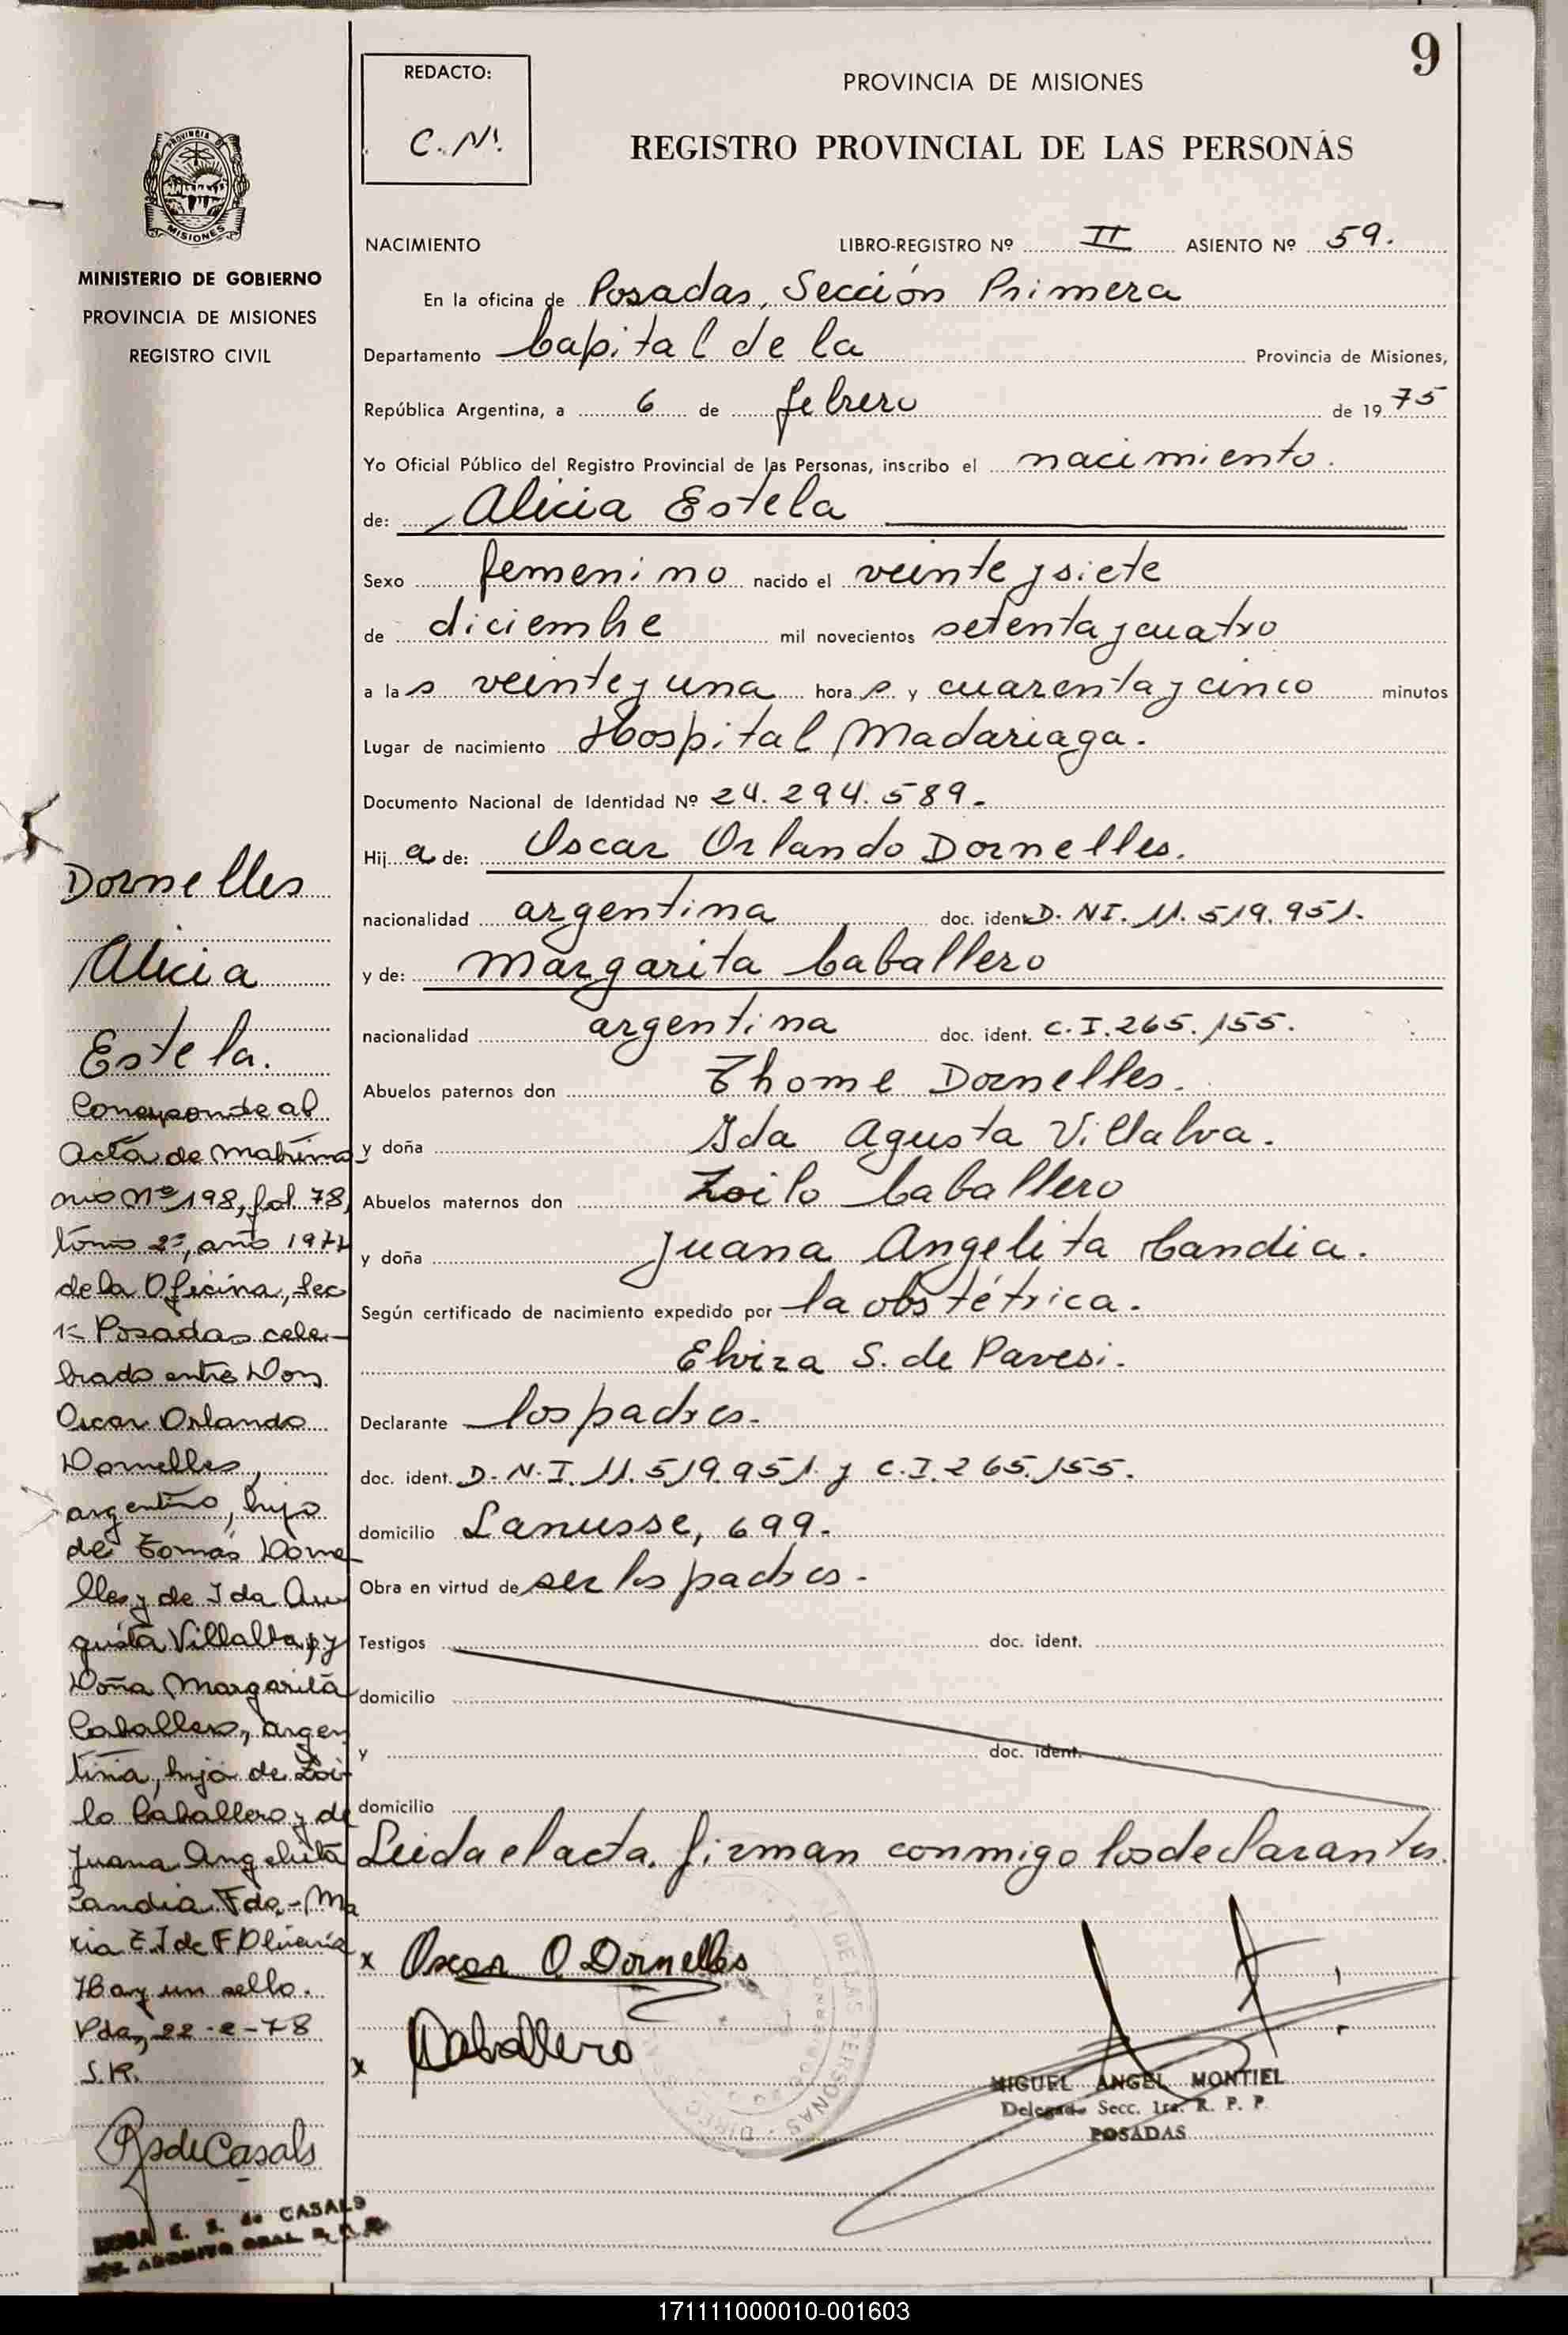 9
REDACTO:
C. N.
PROVINCIA DE MISIONES
REGISTRO PROVINCIAL DE LAS PERSONAS
MISIONES
MINISTERIO DE GOBIERNO
PROVINCIA DE MISIONES
REGISTRO CIVIL
NACIMIENTO LIBRO-REGISTRO Nº II ASIENTO Nº 59.
En la oficina de Posadas, Sección Primera
Departamento Capital de la Provincia de Misiones,
República Argentina, a 6 de febrero de 1975
Yo Oficial Público del Registro Provincial de las Personas, inscribo el nacimiento.
de: Alicia Estela
Sexo femenino nacido el veinte y siete
de diciembre mil novecientos setenta y cuatro
a las veinte y una horas y cuarenta y cinco minutos
Lugar de nacimiento Hospital Madariaga.
Documento Nacional de Identidad Nº 24.294.589.
Hija de: Oscar Orlando Dornelles.
nacionalidad argentina doc. ident. D.NI. 11.519.951.
y de: Margarita Caballero
nacionalidad argentina doc. ident. C.I.265.155.
Abuelos paternos don Thome Dornelles.
y doña Ida Agusta Villalva.
Abuelos maternos don Zoilo Caballero
y doña Juana Angelita Candia.
Según certificado de nacimiento expedido por la obstétrica.
Elvira S. de Pavesi.
Declarante los padres.
doc. ident. D.N.I. 11.519.951. y C.I.265.155.
domicilio Lanusse, 699.
Obra en virtud de ser los padres.
Testigos doc. ident.
domicilio
y doc. ident.
domicilio
Leida el acta. firman conmigo los declarantes.
x Oscar O. Dornelles
x Caballero
MIGUEL ANGEL MONTIEL
Delegado Secc. 1ra. R. P. P.
POSADAS
Dornelles
Alicia
Estela.
Corresponde al
Acta de Matrimo
nio Nº 198, fol. 78,
tomo 2º, año 1977
de la Oficina, Sec
1ª Posadas cele-
brado entre Don
Oscar Orlando
Dornelles,
argentino, hijo
de Tomás Dorne
lles y de Ida Au
gusta Villalba, y
Doña Margarita
Caballero, argen
tina, hija de Zoi-
lo Caballero y de
Juana Angelita
Candia. Fdo.- Ma
ria E. I de F
Hay un sello.
Pdas, 22-2-78
S.R.
R S de Casals
ROSA E. S. de CASALS
171111000010-001603